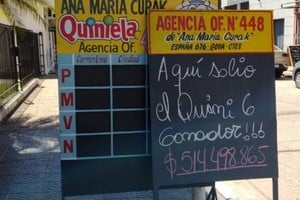 ANA MARIA CURAK
Quiniela
Agencia Of.
Correntina Ciudad
P
M
V
N
AGENCIA OF. Nº 448
de "Ana Maria Curak"
ESPAÑA 676 - GOYA - CTES.
Aquí salio
el Quini 6
Ganador!!!
$ 514498.865